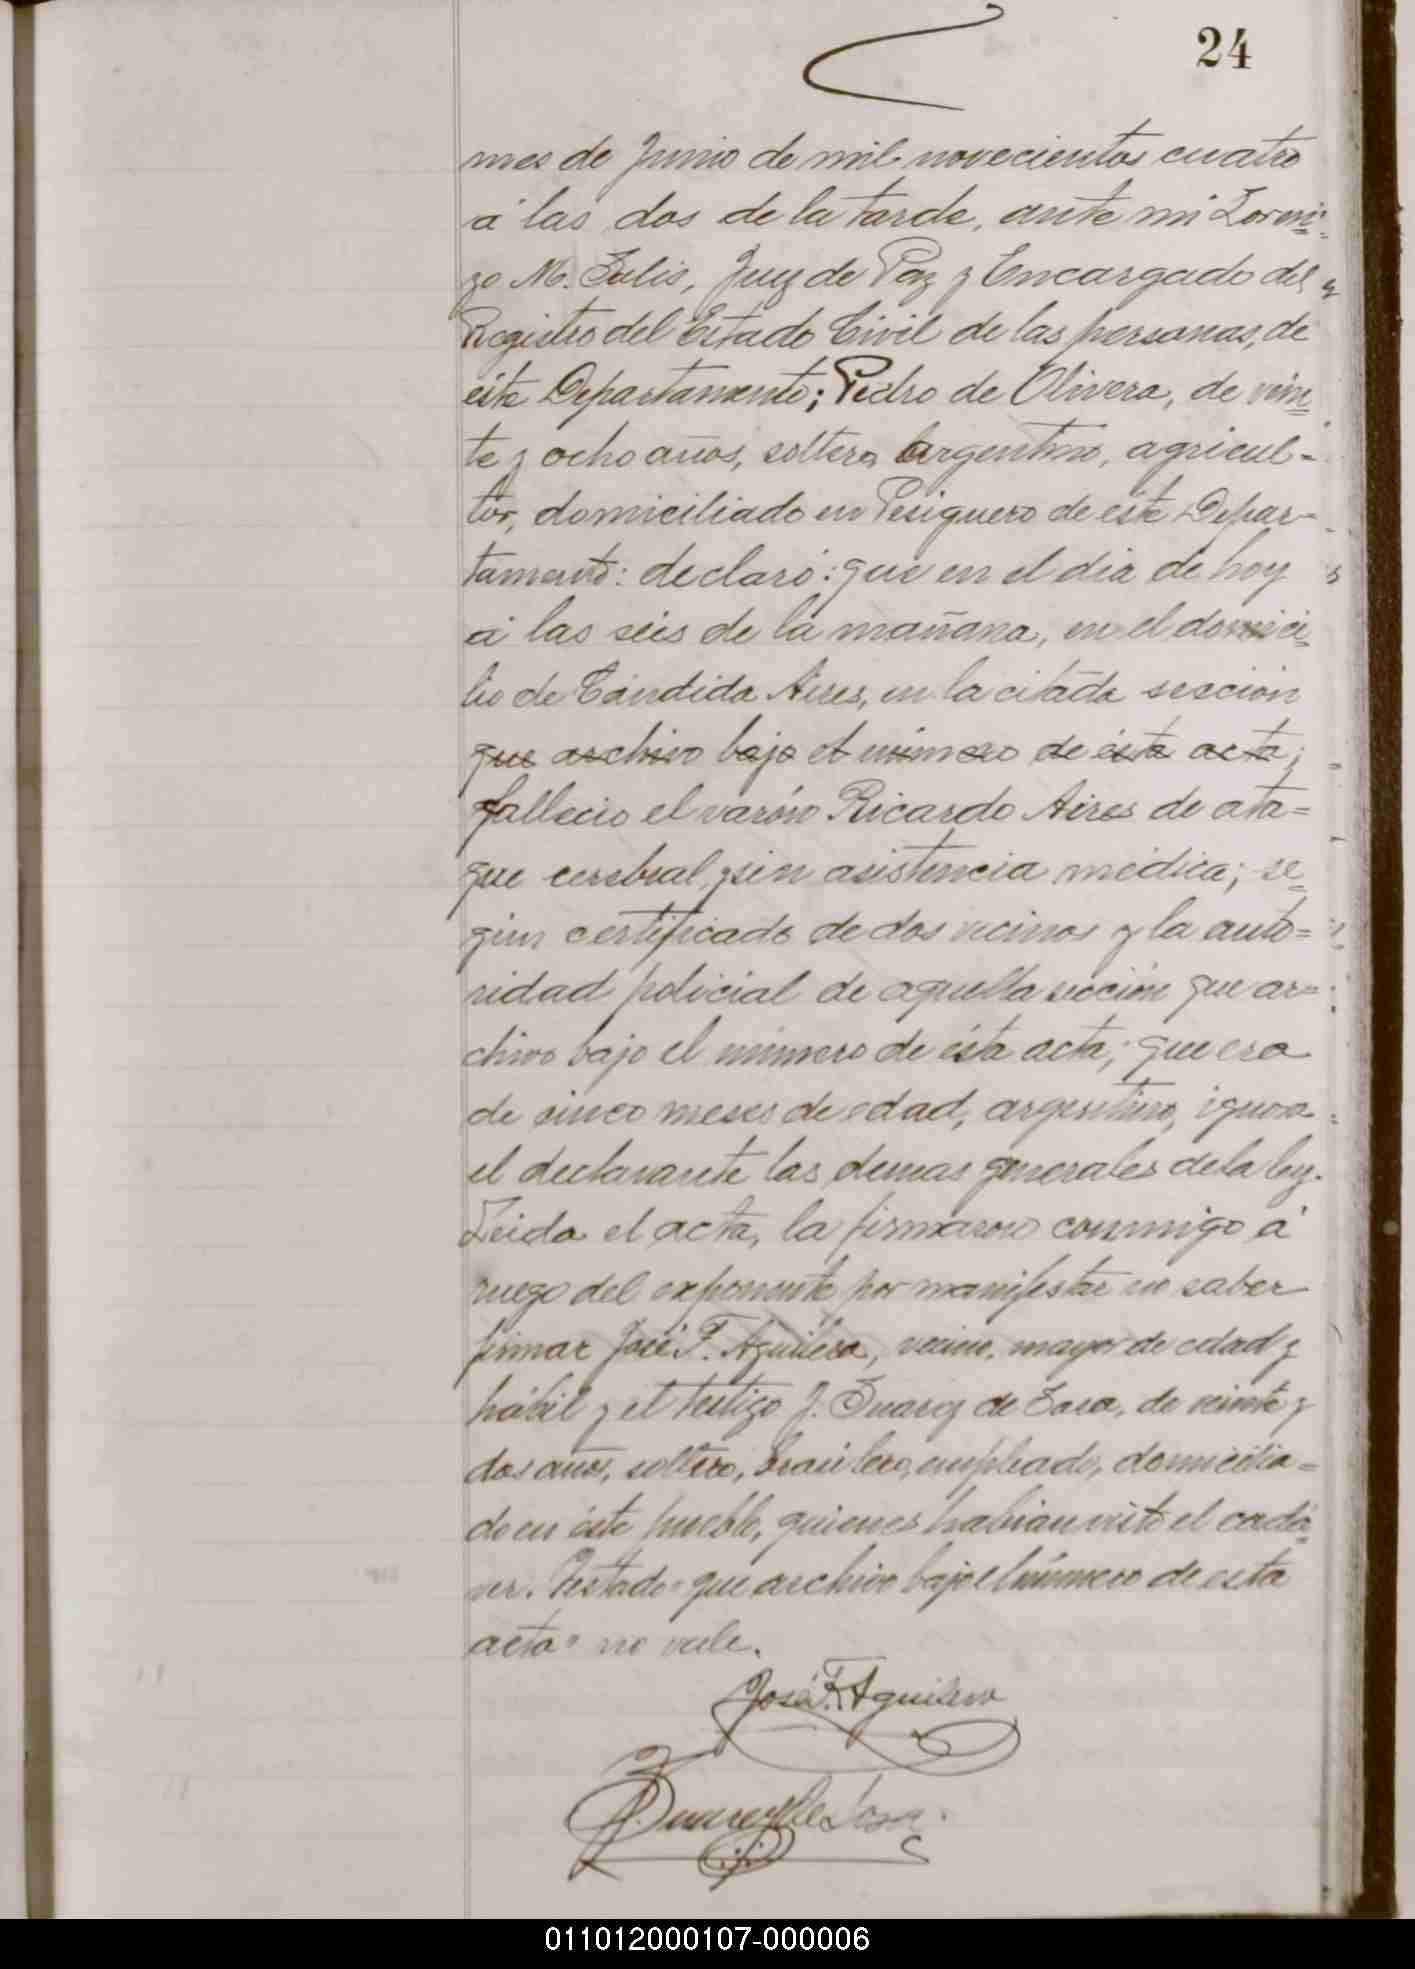 24
mes de Junio de mil novecientos cuatro
á las dos de la tarde, ante mi Loren=
zo M. Solis, Juez de Paz y Encargado del
Registro del Estado Civil de las personas, de
este Departamento; Pedro de Olivera, de vein
te y ocho años, soltero, Argentino, agricul=
tor, domiciliado en Pesiguero de este Depar=
tamento: declaró: que en el dia de hoy
á las seis de la mañana, en el domici=
lio de Cándida Aires, en la citada sección
que archivo bajo el número de ésta acta;
falleció el varón Ricardo Aires de ata=
que cerebral, y sin asistencia médica; se
gún certificado de dos vecinos y la auto=
ridad policial de aquella sección que ar=
chivo bajo el número de ésta acta; que era
de cinco meses de edad, argentino, ignora
el declarante las demas generales de la ley.
Leida el acta, la firmaron conmigo á
ruego del exponente por manifestar no saber
firmar José F. Aguilera, vecino, mayor de edad y
hábil y el testigo J. Suarez de Sosa, de veinte y
dos años, soltero, brasilero, empleado, domicilia=
do en éste pueblo, quienes habian visto el cadá
ver. Testado "que archivo bajo el número de esta
acta" no vale.
José F. Aguilera
J. Suarez de Sosa
011012000107-000006